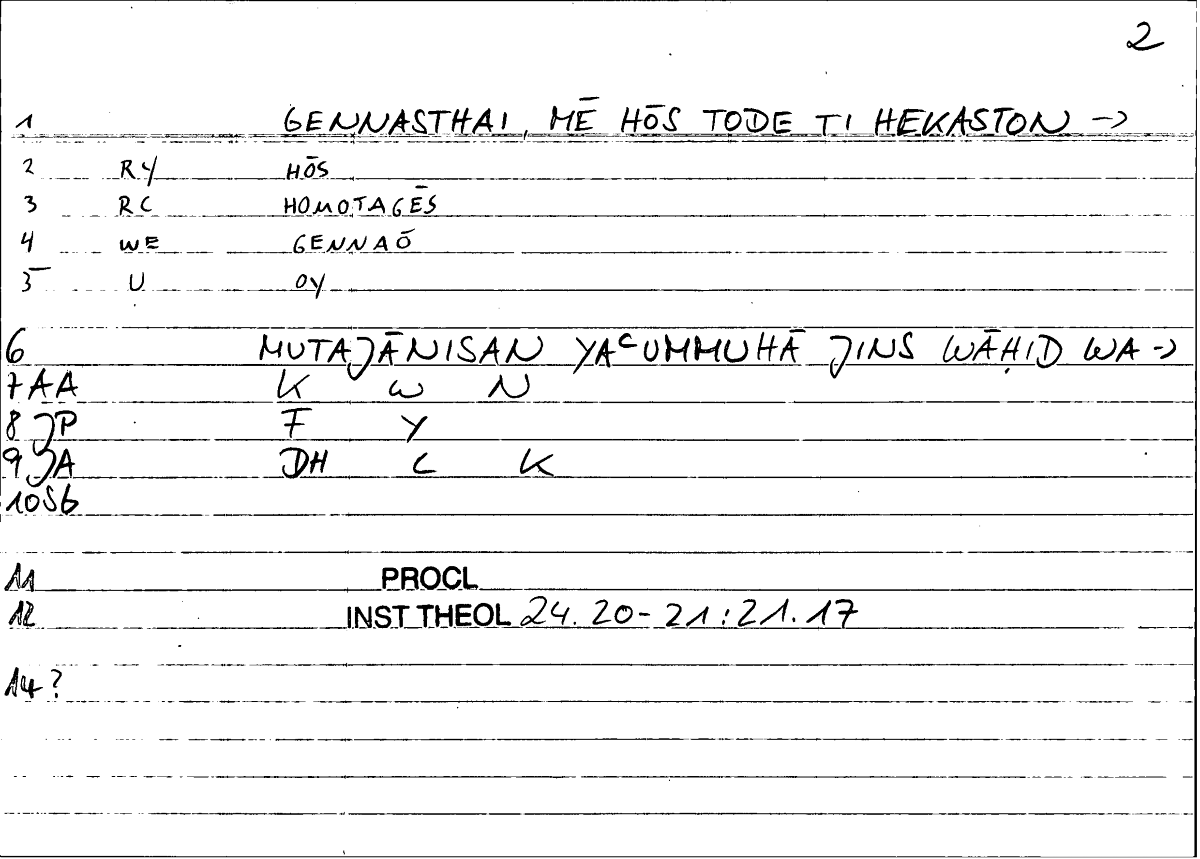 2
1 GENNASTHAI, MĒ HŌS TODE TI HEKASTON ->
2 RY HŌS
3 RC HOMOTAGĒS
4 WE GENNAŌ
5 U OY
6 MUTAJĀNISAN YAᶜUMMUHĀ JINS WĀḤID WA ->
7 AA K W N
8 JP F Y
9 JA DH L K
10 Sb
11 PROCL
12 INST THEOL 24. 20 - 21 : 21. 17
14 ?